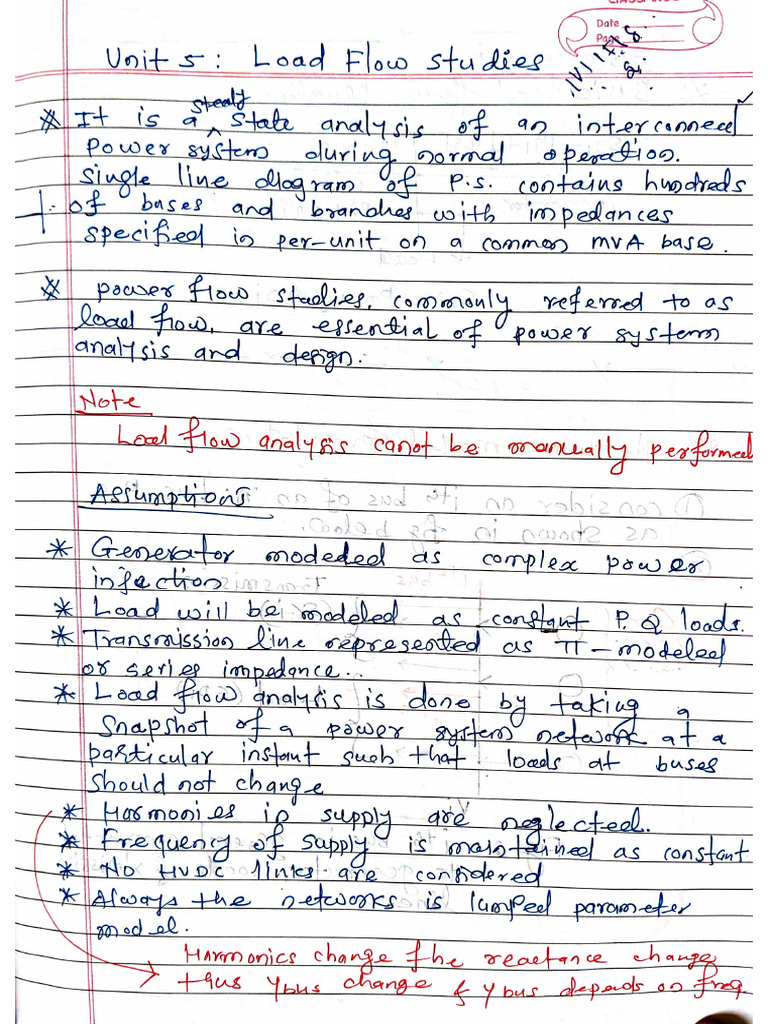 CLASSMATE
Date
Page
Unit 5 : Load Flow studies
* It is a steaty state analysis of an interconneced
power system during normal operation.
single line diagram of P.S. contains hundreds
of buses and branches with impedances
specified in per-unit on a common MVA base.
* power flow studies, commonly referred to as
load flow, are essential of power system
analysis and design.
Note
Load flow analysis canot be manually performed
Assumptions
* Generator modeded as complex power
infection
* Load will be modeled as constant P.Q loads.
* Transmission line represented as π-modeled
or series impedance.
* Load flow analysis is done by taking a
snapshot of a power system network at a
particular instant such that loads at buses
should not change
* Harmonies in supply are neglected.
* Frequency of supply is maintained as constant
* No HVDC links are considered
* Always the networks is lumped parameter
model.
Harmonics change the reactance change
thus Ybus change & Ybus depends on freq.